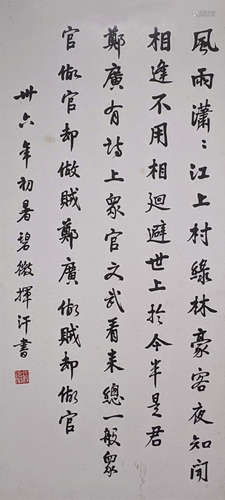 風雨瀟〻江上村綠林豪客夜知聞
相逢不用相廻避世上於今半是君
鄭廣有詩上眾官文武看來總一般眾
官做官却做賊鄭廣做賊却做官
卅六年初暑碧微揮汗書